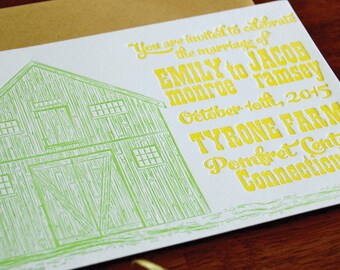 You are invited to celebrate
the marriage of
EMILY to JACOB
monroe ramsey
October 10th, 2015
TYRONE FARM
Pomfret Cent
Connecticu